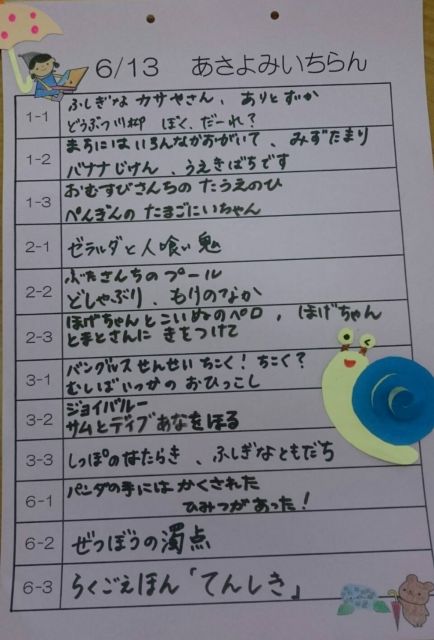 6/13 あさよみいちらん
1-1 ふしぎな カサやさん、ありとすいか
どうぶつ川柳 ぼく、だーれ?
1-2 まちには いろんな かおがいて、みずたまり
バナナじけん、うえきばちです
1-3 おむすびさんちの たうえのひ
ぺんぎんの たまごにいちゃん
2-1 ゼラルダと人喰い鬼
2-2 ぶたさんちの プール
どしゃぶり、もりのなか
2-3 ほげちゃんとこいぬのペロ, ほげちゃん
とまとさんに きをつけて
3-1 バングルスせんせい ちこく! ちこく?
むしばいっかの おひっこし
3-2 ジョイバルー
サムとデイブあなをほる
3-3 しっぽのはたらき、ふしぎなともだち
6-1 パンダの手には かくされた
ひみつがあった!
6-2 ぜつぼうの濁点
6-3 らくごえほん「てんしき」